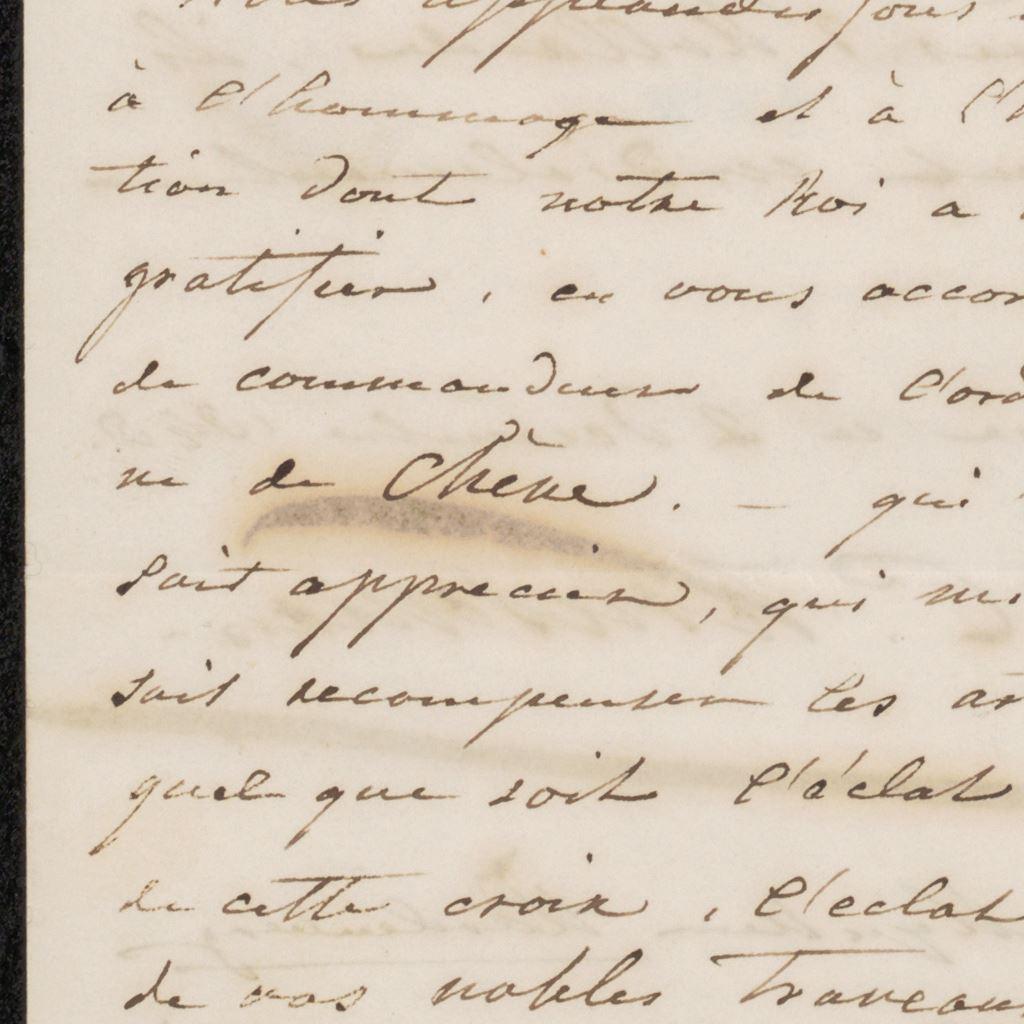 applaudis tous
à l'hommage et à l'h
tion dont notre Roi a
gratifier, en vous accor
de commandeur de l'ord
ne de Chène. — qui
sait apprecier, qui
sait recompenser les ar
quel que soit l'éclat
de cette croix, l'eclat
de vos nobles travaux